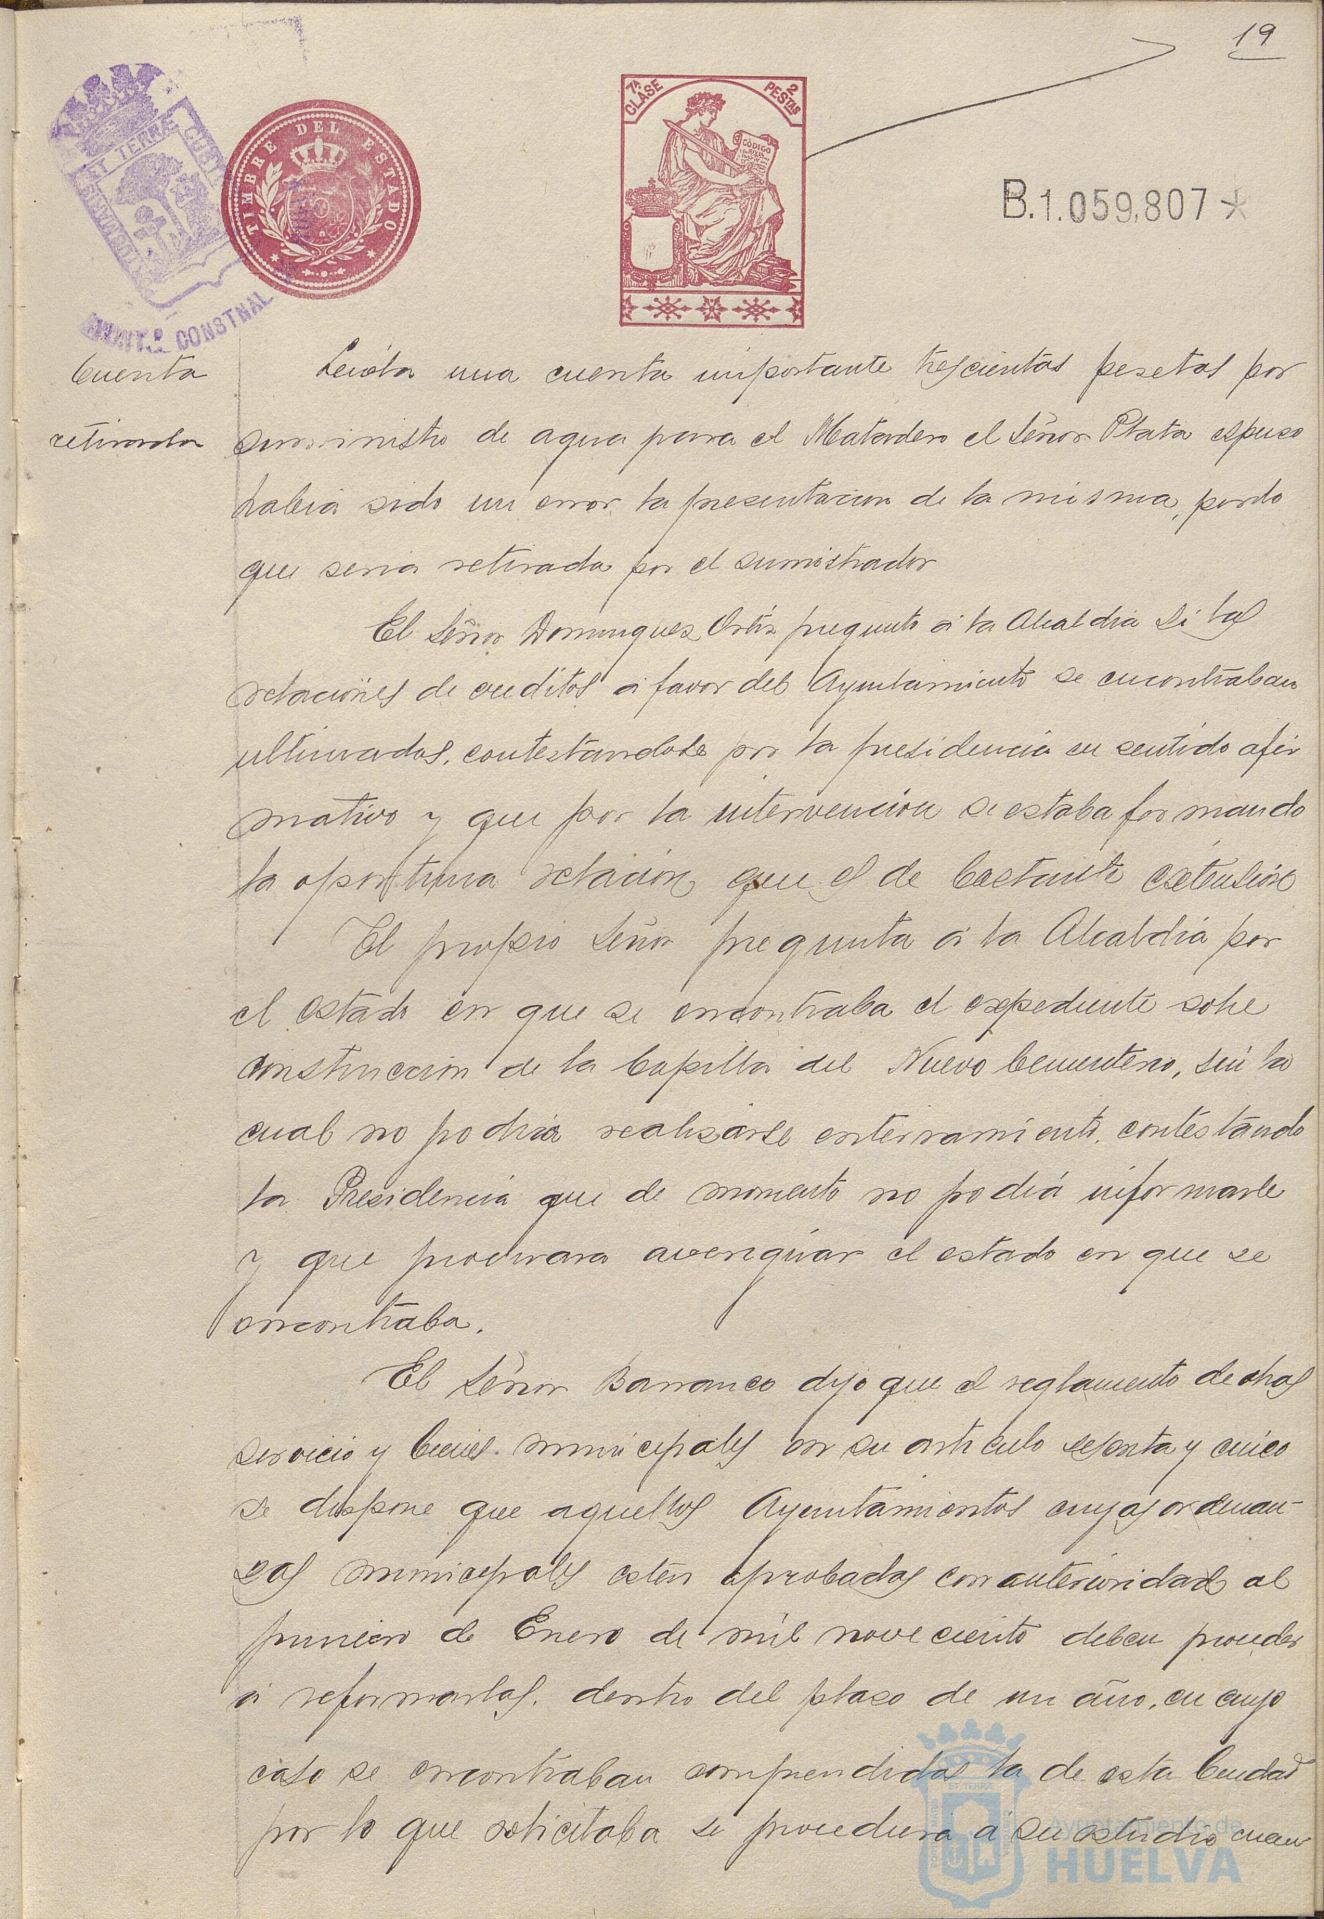 19
7ª CLASE
2 PESTAS
CÓDIGO
TIMBRE DEL ESTADO
ET TERRÆ CUST
CONSTNAL
B.1.059,807
Cuenta
retirada
Leida una cuenta importante trescientas pesetas por
suministro de agua para el Matadero el Señor Plata espuso
habia sido un error la presentacion de la misma, por lo
que seria retirada por el sumistrador
El Señor Dominguez Ortiz pregunto á la Alcaldia si las
relaciones de creditos á favor del Ayuntamiento se encontraban
ultimadas, contestandole por la presidencia en sentido afir
mativo y que por la intervención se estaba formando
la oportuna relacion, que es de bastante extensión
El propio Señor pregunta á la Alcaldia por
el estado en que se encontraba el expediente sobre
construccion de la Capilla del Nuevo Cementerio, sin la
cual no podria realizarse enterramiento, contestando
la Presidencia que de momento no podiá informarle
y que procurara averiguar el estado en que se
encontraba.
El Señor Barranco dijo que el reglamento de obras
servicio y bienes municipales en su articulo sesenta y cinco
se dispone que aquellos Ayuntamientos cuyas ordenan-
zas municipales esten aprobadas con anterioridad al
primero de Enero de mil noveciento deben proceder
á reformarlas, dentro del plaso de un año, en cuyo
caso se encontraban comprendidas la de esta Ciudad
por lo que solicitaba se procediera á su estudio cuan
Ayuntamiento de
HUELVA